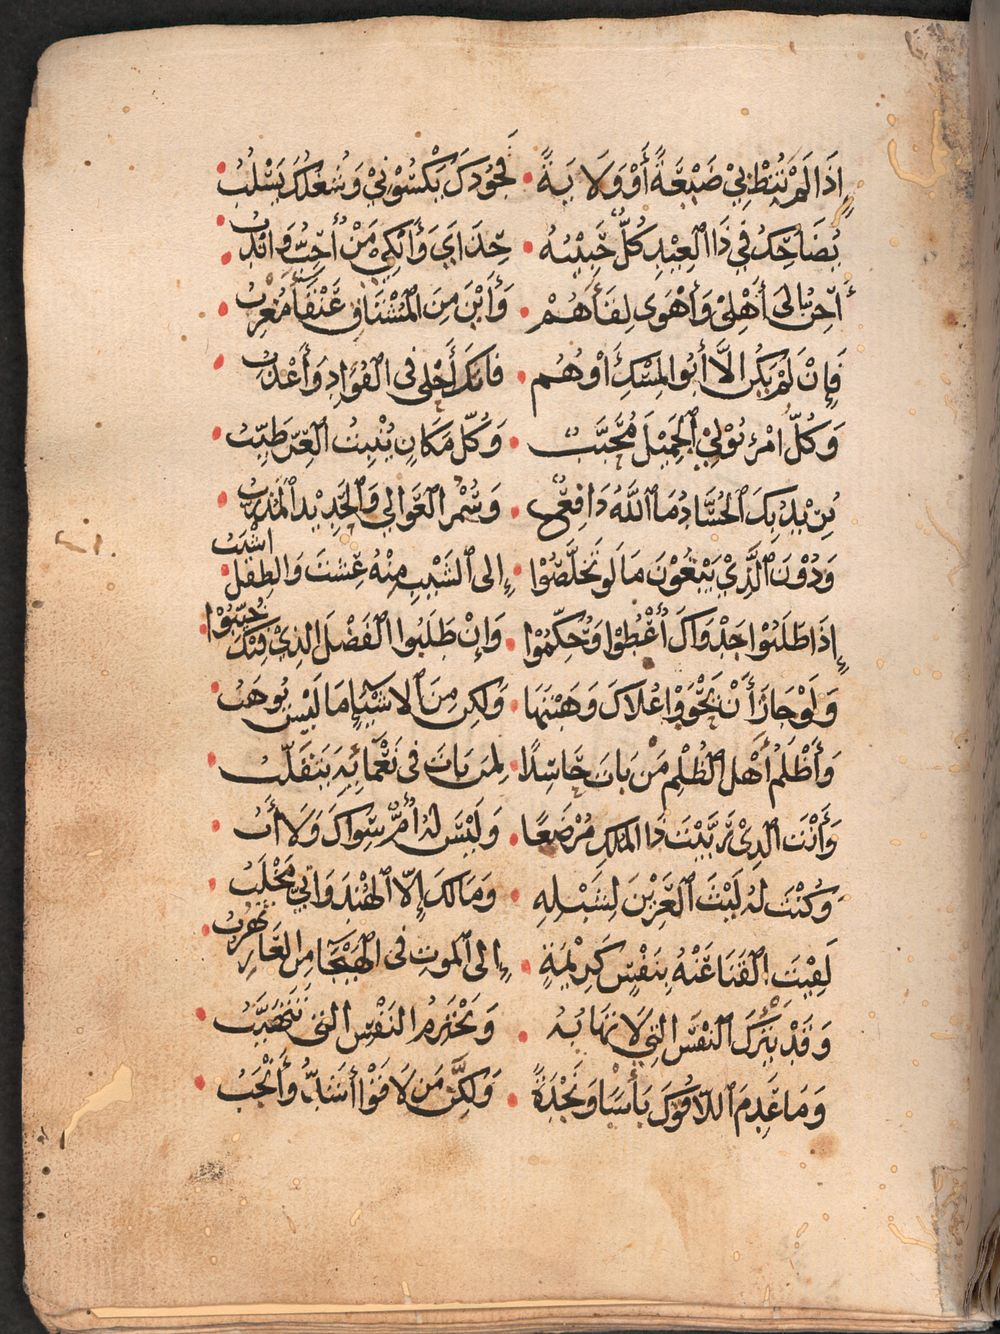 إِذَا لَمْ تُنِطْ بِيْ ضَيْعَةً أَوْ وَلَايَةً • فَجُوْدُكَ يَكْسُوْنِيْ وَشُغْلُكَ يَسْلُبُ •
يُضَاحِكُ فِي ذَا الْعِيْدِ كُلٌّ حَبِيْبَهُ • حِذَايَ وَأَبْكِيْ مَنْ أُحِبُّ وَأَنْدُبُ •
أَحِنُّ إِلَى أَهْلِيْ وَأَهْوَى لِقَاءَهُمْ • وَأَيْنَ مِنَ الْمُشْتَاقِ عَنْقَاءُ مُغْرِبُ •
فَإِنْ لَمْ يَكُنْ إِلَّا أَبُو الْمِسْكِ أَوْ هُمُ • فَإِنَّكَ أَحْلَى فِي الْفُؤَادِ وَأَعْذَبُ •
وَكُلُّ امْرِئٍ يُوْلِيْ الْجَمِيْلَ مُحَبَّبٌ • وَكُلُّ مَكَانٍ يُنْبِتُ الْعِزَّ طَيِّبُ •
يُرِيْدُ بِكَ الْحُسَّادُ مَا اللَّهُ دَافِعٌ • وَسُمْرُ الْعَوَالِي وَالْحَدِيْدُ الْمُذَرَّبُ •
وَدُوْنَ الَّذِيْ يَبْغُوْنَ مَا لَوْ تَخَلَّصُوْا • إِلَى الشَّيْبِ مِنْهُ عِشْتَ وَالطِّفْلُ أَشْيَبُ
إِذَا طَلَبُوْا جَدْوَاكَ أُعْطُوْا وَحُكِّمُوْا • وَإِنْ طَلَبُوا الْفَضْلَ الَّذِيْ فِيْكَ خُيِّبُوْا •
وَلَوْ جَازَ أَنْ يَحْوُوْا عُلَاكَ وَهَبْتَهَا • وَلَكِنْ مِنَ الْأَشْيَاءِ مَا لَيْسَ يُوهَبُ •
وَأَظْلَمُ أَهْلِ الظُّلْمِ مَنْ بَاتَ حَاسِدًا • لِمَنْ بَاتَ فِي نَعْمَائِهِ يَتَقَلَّبُ •
وَأَنْتَ الَّذِي رَبَّيْتَ ذَا الْمُلْكِ مُرْضَعًا • وَلَيْسَ لَهُ أُمٌّ سِوَاكَ وَلَا أَبُ •
وَكُنْتَ لَهُ لَيْثَ الْعَرِيْنِ لِشِبْلِهِ • وَمَا لَكَ إِلَّا الْهِنْدَوَانِيَّ مَخْلَبُ •
لَقِيْتَ الْقَنَا عَنْهُ بِنَفْسٍ كَرِيْمَةٍ • إِلَى الْمَوْتِ فِي الْهَيْجَا مِنَ الْعَارِ تَهْرُبُ •
وَقَدْ يَتْرُكُ النَّفْسَ الَّتِي لَا تَهَابُهُ • وَيَخْتَرِمُ النَّفْسَ الَّتِي تَتَهَيَّبُ •
وَمَا عَدِمَ اللَّاقُوْكَ بَأْسًا وَنَجْدَةً • وَلَكِنَّ مَنْ لَاقَوْا أَشَدُّ وَأَنْجَبُ •